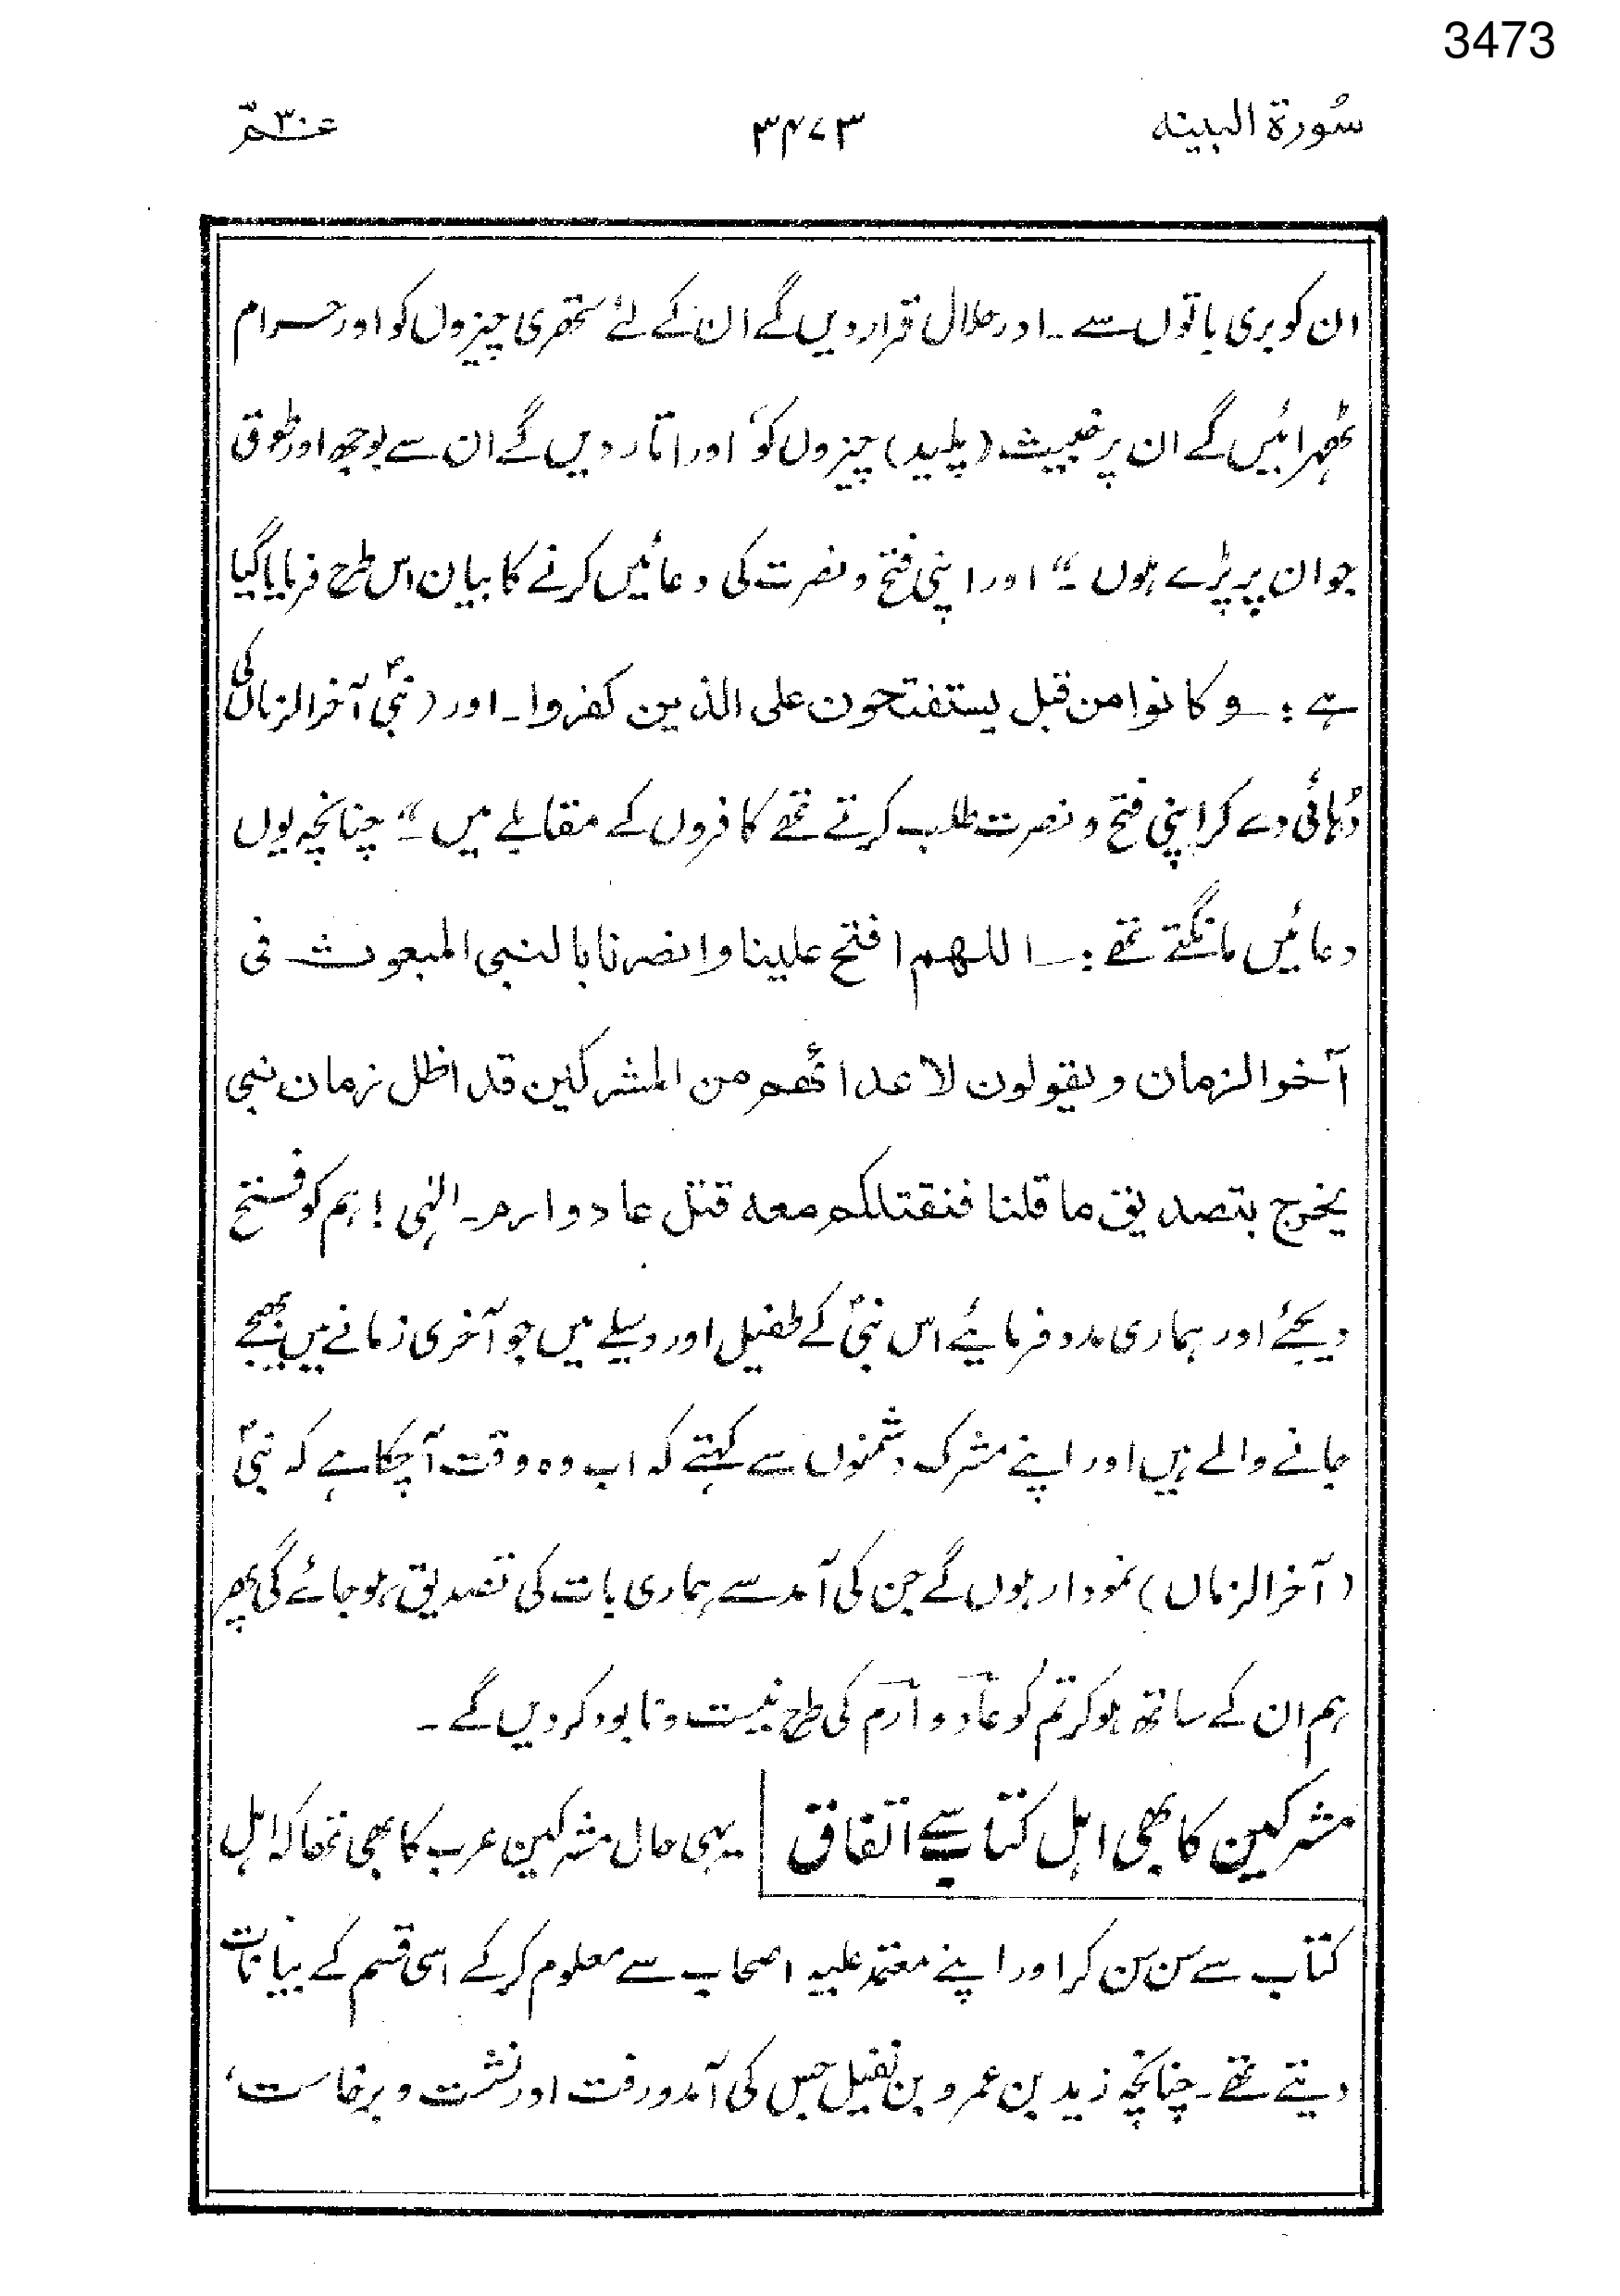 3473
سُورۃ البینہ ۳۴۷۳ عمّ ۳۰
ان کو بری باتوں سے۔ اور حلال قرار دیں گے ان کے لئے ستھری چیزوں کو اور حرام
ٹھہرائیں گے ان پر خبیث (پلید) چیزوں کو، اور اتار دیں گے ان سے بوجھ اور طوق
جو ان پر پڑے ہوں۔“ اور اپنی فتح و نصرت کی دعائیں کرنے کا بیان اس طرح فرمایا گیا
ہے :۔ وکانوا من قبل یستفتحون علی الذین کفروا۔ اور (نبیؐ آخر الزماں کی
دُہائی دے کر اپنی فتح و نصرت طلب کرتے تھے کافروں کے مقابلے میں۔“ چنانچہ یوں
دعائیں مانگتے تھے :۔ اللہم افتح علینا وانصرنا بالنبی المبعوث فی
آخر الزمان ویقولون لاعدائھم من المشرکین قد اظل زمان نبی
یخرج بتصدیق ما قلنا فنقتلکم معہ قتل عاد وارم۔ الٰہی! ہم کو فتح
دیجئے اور ہماری مدد فرمائیے اس نبیؐ کے طفیل اور وسیلے میں جو آخری زمانے میں بھیجے
جانے والے ہیں اور اپنے مشرک دشمنوں سے کہتے کہ اب وہ وقت آچکا ہے کہ نبیؐ
(آخر الزماں) نمودار ہوں گے جن کی آمد سے ہماری بات کی تصدیق ہو جائے گی پھر
ہم ان کے ساتھ ہو کر تم کو عاد و ارم کی طرح نیست و نابود کر دیں گے۔
مشرکین کا بھی اہل کتاب سے اتفاق یہی حال مشرکین عرب کا بھی تھا کہ اہل
کتاب سے سن سن کر اور اپنے معتمد علیہ اصحاب سے معلوم کر کے اسی قسم کے بیانات
دیتے تھے۔ چنانچہ زید بن عمرو بن نفیل جس کی آمد و رفت اور نشست و برخاست،